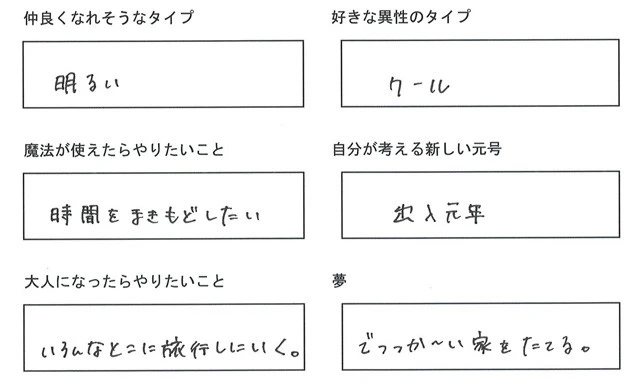 仲良くなれそうなタイプ
好きな異性のタイプ
明るい
クール
魔法が使えたらやりたいこと
自分が考える新しい元号
時間をまきもどしたい
出入元年
大人になったらやりたいこと
夢
いろんなとこに旅行しにいく。
でっっか〜い家をたてる。